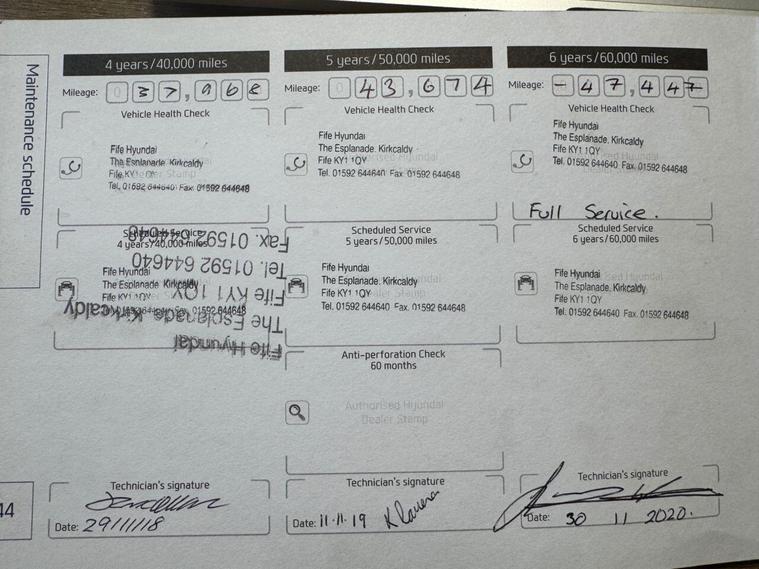 Maintenance schedule
4 years/40,000 miles
Mileage: 0 3 7 , 9 6 8
Vehicle Health Check
Fife Hyundai
The Esplanade. Kirkcaldy
Fife KY1 1QY
Tel. 01592 644640 Fax. 01592 644648
Scheduled Service
4 years/40,000 miles
Fife Hyundai
The Esplanade. Kirkcaldy
Fife KY1 1QY
Fife Hyundai
The Esplanade. Kirkcaldy
Fife KY1 1QY
Tel. 01592 644640
Fax. 01592 644648
Technician's signature
Date: 29/11/18
5 years/50,000 miles
Mileage: 0 4 3 , 6 7 4
Vehicle Health Check
Fife Hyundai
The Esplanade. Kirkcaldy
Fife KY1 1QY
Tel. 01592 644640 Fax. 01592 644648
Scheduled Service
5 years/50,000 miles
Fife Hyundai
The Esplanade. Kirkcaldy
Fife KY1 1QY
Tel. 01592 644640 Fax. 01592 644648
Anti-perforation Check
60 months
Authorised Hyundai
Dealer Stamp
Technician's signature
Date: 11.11.19
6 years/60,000 miles
Mileage: - 4 7 , 4 4 7
Vehicle Health Check
Fife Hyundai
The Esplanade. Kirkcaldy
Fife KY1 1QY
Tel. 01592 644640 Fax. 01592 644648
Full Service.
Scheduled Service
6 years/60,000 miles
Fife Hyundai
The Esplanade. Kirkcaldy
Fife KY1 1QY
Tel. 01592 644640 Fax. 01592 644648
Technician's signature
Date: 30 11 2020.
44